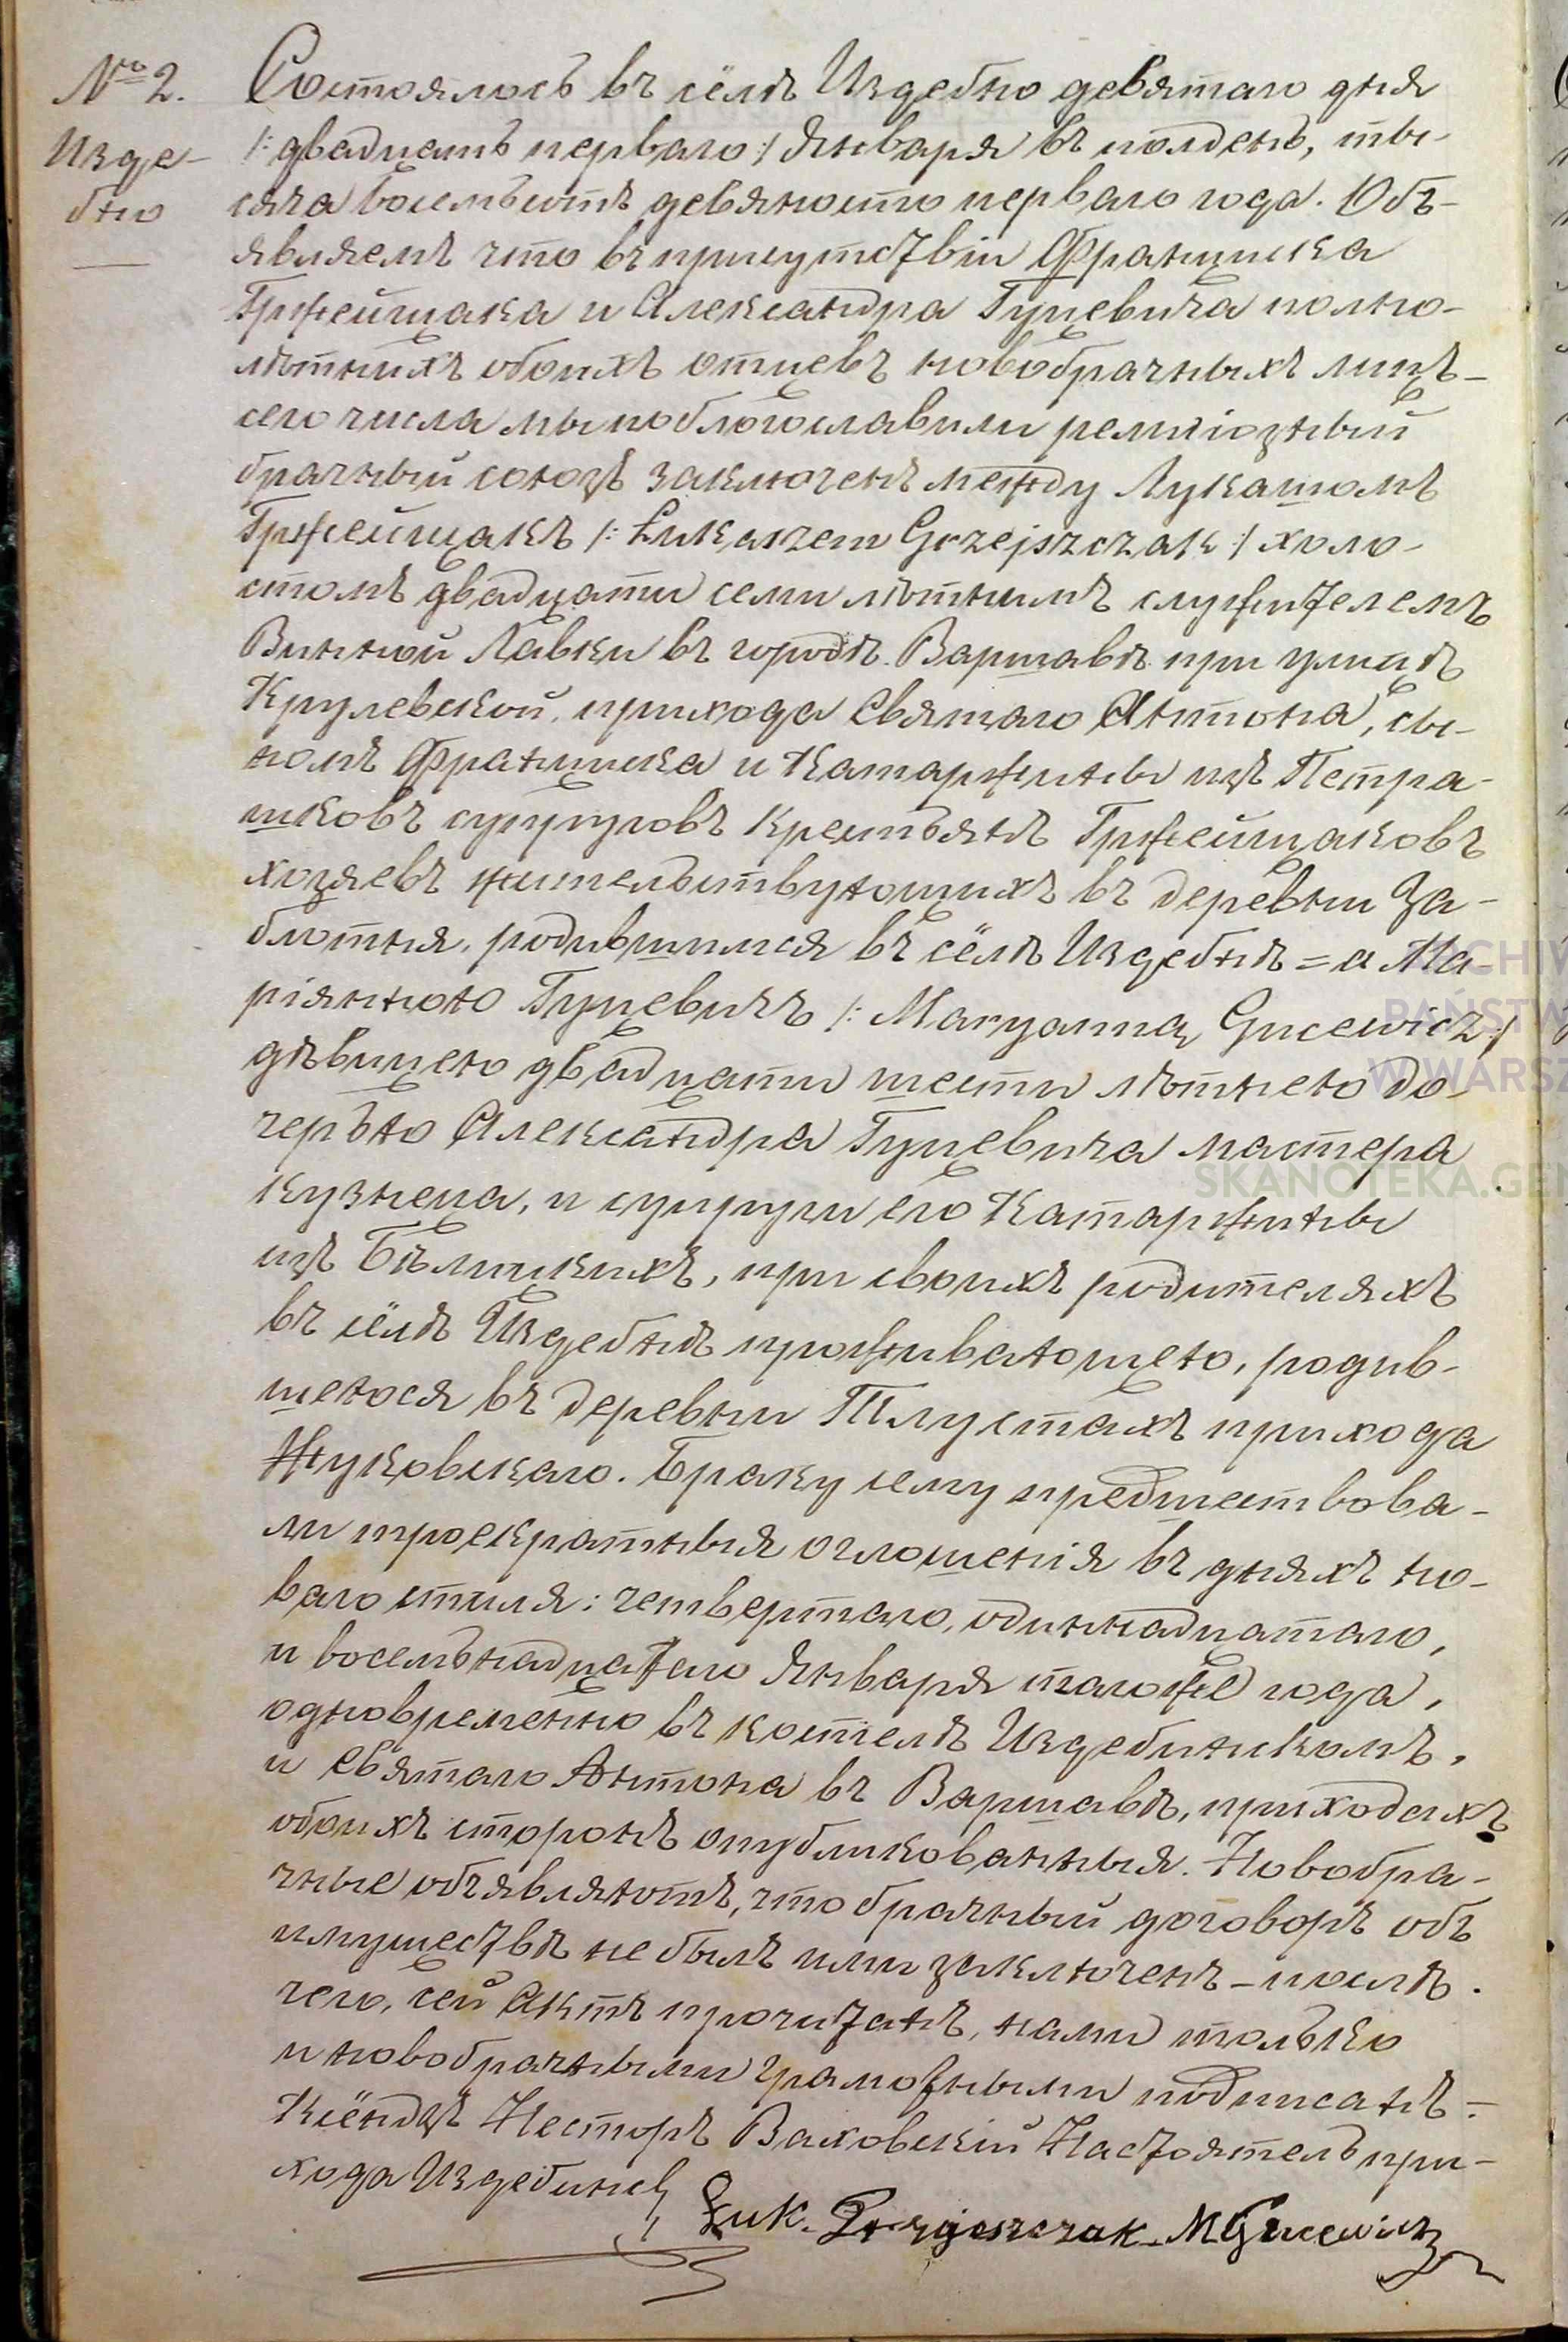 № 2.
Изде-
бно
Состоялось въ сёлѣ Издебно девятаго дня
/: двадцать перваго :/ Января въ полдень, ты-
сяча восемьсотъ девяносто перваго года. Объ-
являемъ что въ присутствіи Францишка
Гржейщака и Александра Гуцевича полно-
лѣтнихъ обоихъ отцевъ новобрачныхъ лицъ-
сего числа мы поблогославили религіозный
брачный союзъ заключенъ между Лукашомъ
Гржейщакъ /: Łukaszem Grzejszczak :/ холо-
стомъ двадцати семи лѣтнимъ служителемъ
Винной Лавки въ городѣ Варшавѣ при улицѣ
Крулевской, прихода Святаго Антона, сы-
номъ Францишка и Катаржины изъ Петра-
шковъ супруговъ Крестьянъ Гржейщаковъ
хозяевъ жительствующихъ въ деревни За-
блотня, родившимся въ сёлѣ Издебнѣ = а Ма-
ріянною Гуцевичъ /: Maryanną Gucewicz :/
дѣвицею двадцати шести лѣтнею до-
черью Александра Гуцевича мастера
кузнеца, и супруги его Катаржины
изъ Бѣлицкихъ, при своихъ родителяхъ
въ сёлѣ Издебнѣ проживающею, родив-
шеюся въ деревни Тлустахъ прихода
Жуковскаго. Браку сему предшествова-
ли троекратныя оглошенія въ дняхъ но-
ваго стиля: четвертаго, одиннадцатаго,
и восемьнадцатаго Января тагоже года,
одновременно въ костелѣ Издебинскомъ,
и Святаго Антона въ Варшавѣ, приходахъ
обоихъ сторонъ опубликованныя. Новобра-
чные объявляютъ, что брачный договоръ объ
имуществѣ не былъ ими заключенъ - послѣ
чего, сей Актъ прочитанъ, нами только
и новобрачными грамотными подписанъ =
Ксёндзъ Несторъ Ваховскій Настоятель при-
хода
Łuk. Grzejszczak. M Gucewicz
ARCHIW
PAŃSTW
W WARSZ
SKANOTEKA.GE